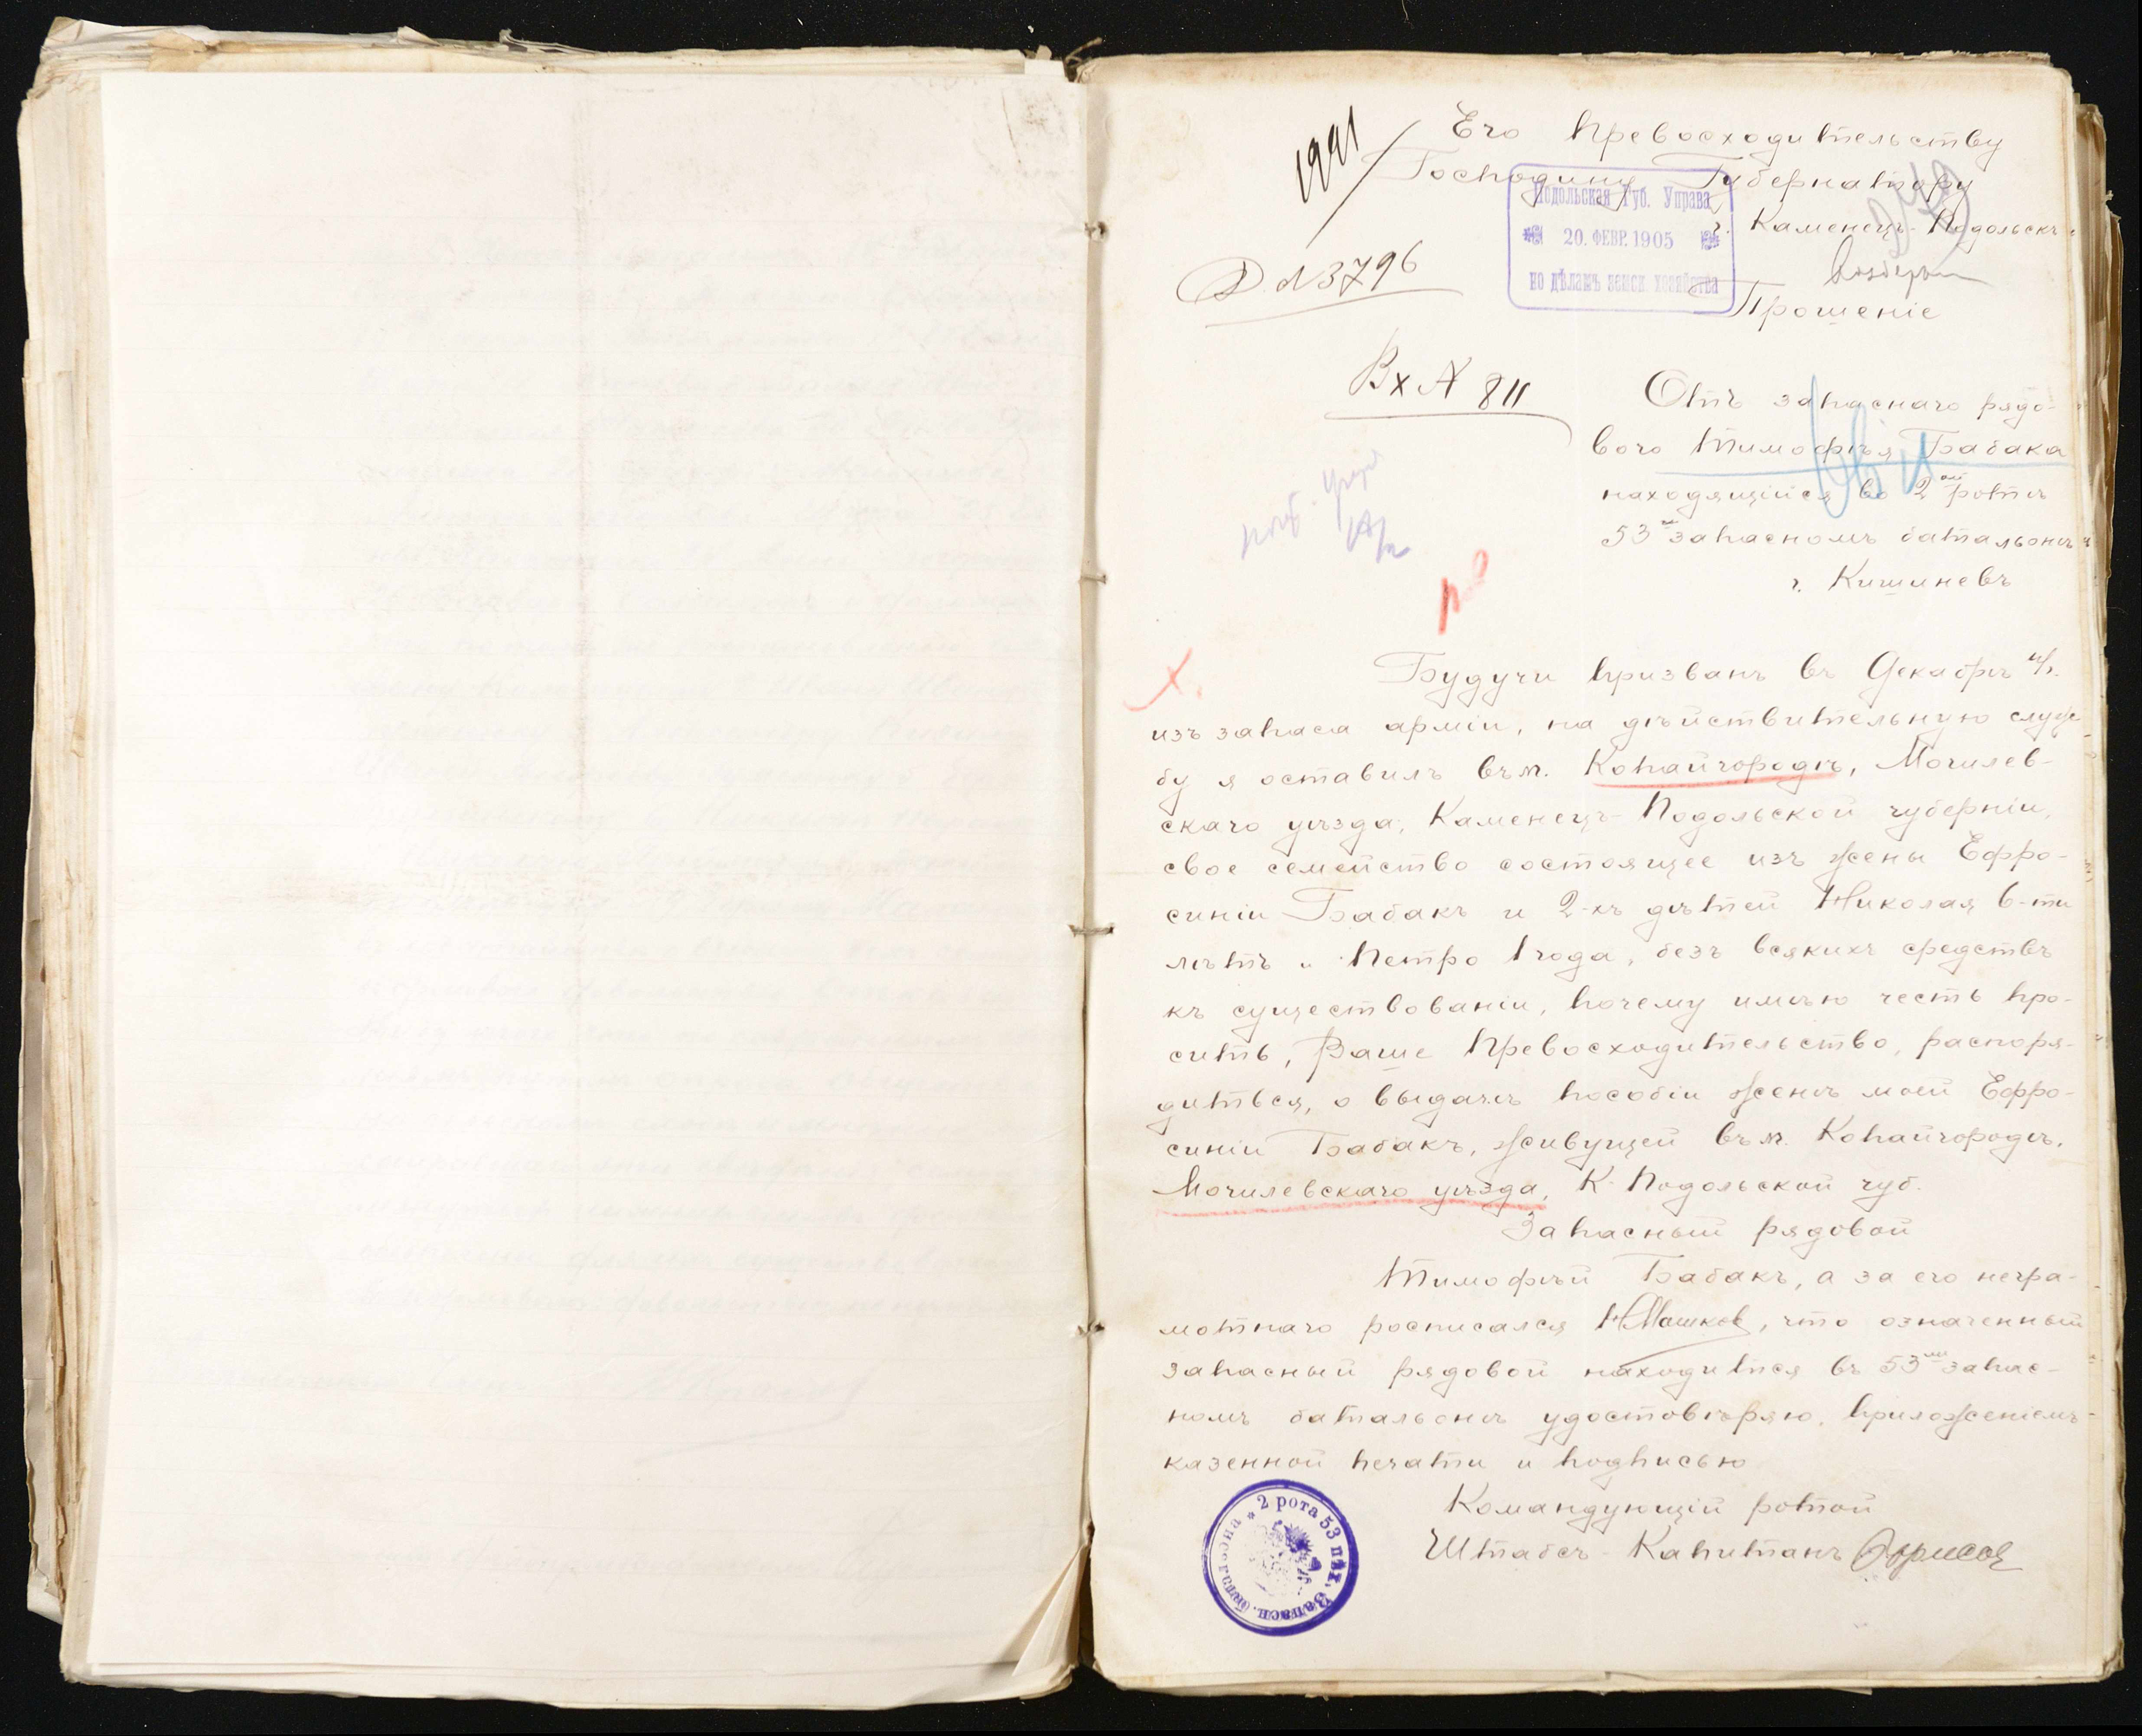 Его Превосходительству
1991
Господину Губернатору
Подольская Губ. Управа
г. Каменецъ-Подольскъ
20. ФЕВР. 1905
Д. № 3796
по дѣламъ земск. хозяйства
Прошеніе
Вх № 811
Отъ запаснаго рядо-
вого Тимофѣя Бабака
находящійся во 2ой ротѣ
53мъ запасномъ баталіонѣ
г. Кишиневъ
Будучи призванъ въ Декабрѣ м/г.
изъ запаса арміи, на дѣйствительную служ-
бу я оставилъ въ м. Копайгородѣ, Могилев-
скаго уѣзда, Каменецъ-Подольской губерніи,
свое семейство состоящее изъ жены Ефро-
синіи Бабакъ и 2-хъ дѣтей Николая 6-ти
лѣтъ и Петро 1 года, безъ всякихъ средствъ
къ существованіи, почему имѣю честь про-
сить, Ваше Превосходительство, распоря-
диться, о выдачѣ пособіи женѣ моей Ефро-
синіи Бабакъ, живущей въ м. Копайгородѣ,
Могилевскаго уѣзда, К-Подольской губ.
Запасный рядовой
Тимофѣй Бабакъ, а за его негра-
мотнаго росписался Н Машков, что означенный
запасный рядовой находится въ 53мъ запас-
номъ баталіонѣ удостовѣряю, приложеніемъ
казенной печати и подписью
Командующій ротой
Штабсъ-Капитанъ
2 рота 53 пѣх. Запасн. баталіона